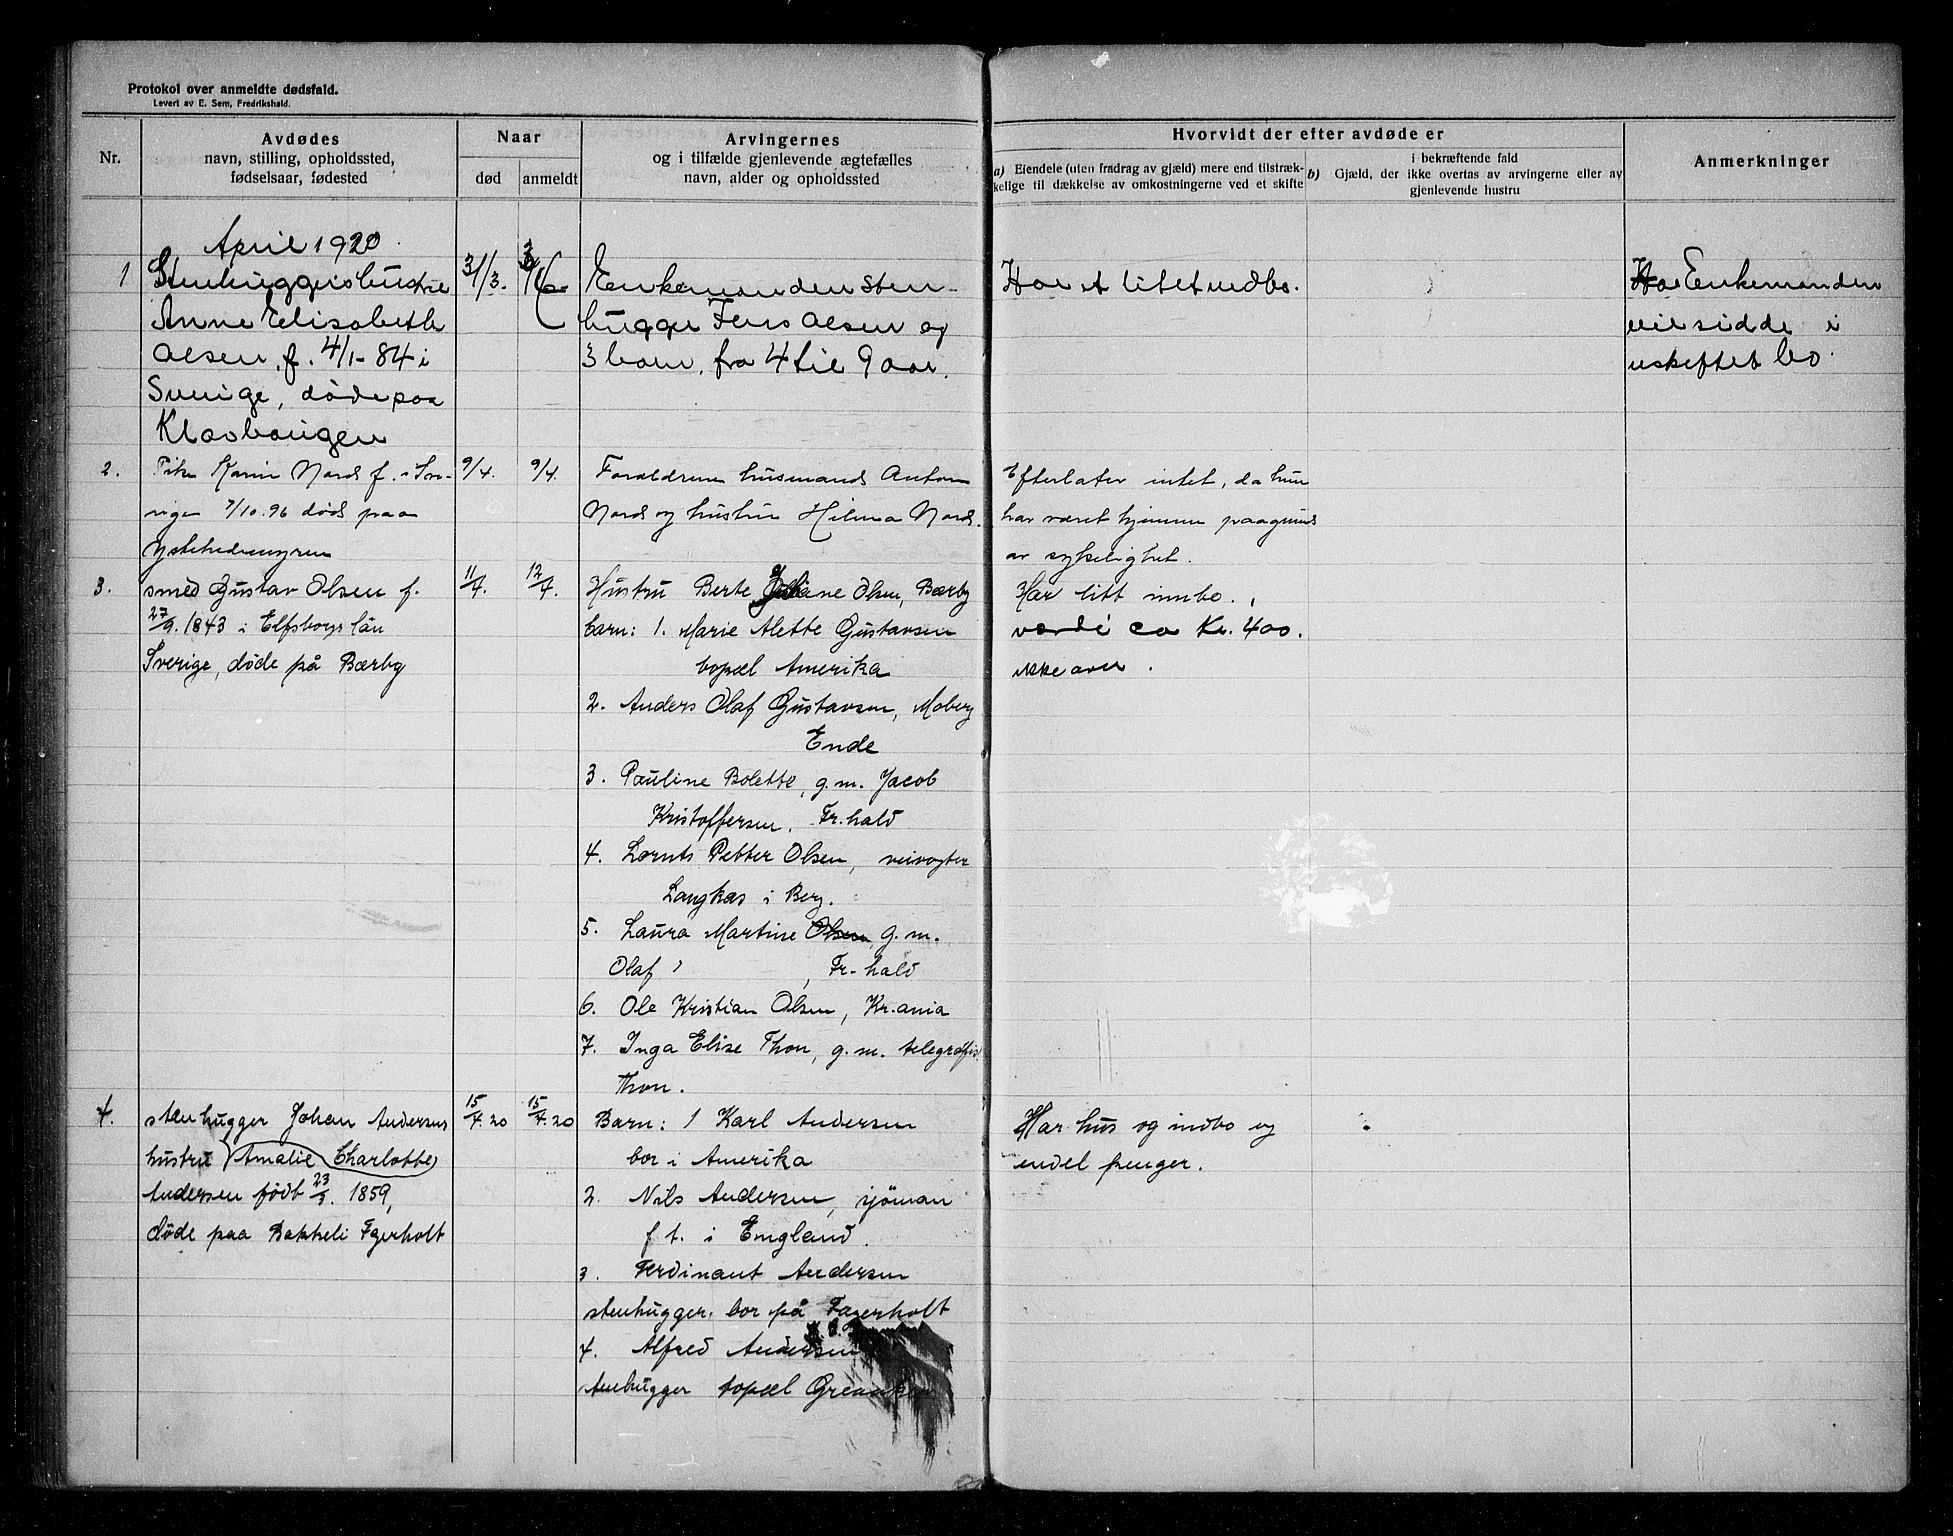 Protokol over anmeldte dødsfald.
Levert av E. Sem, Fredrikshald.
Nr.
Avdødes
navn, stilling, opholdssted,
fødselsaar, fødested
Naar
død
anmeldt
Arvingernes
og i tilfælde gjenlevende ægtefælles
navn, alder og opholdssted
Hvorvidt der efter avdøde er
a) Eiendele (uten fradrag av gjæld) mere end tilstræk-
kelige til dækkelse av omkostningerne ved et skifte
i bekræftende fald
b) Gjæld, der ikke overtas av arvingerne eller av
gjenlevende hustru
Anmerkninger
April 1920
1
Stenhuggershustru
Anne Elisabeth
Olsen, f. 4/1-84 i
Sverige, døde paa
Klovbaugen
31/3.
Enkemanden sten-
hugger Jens Olsen og
3 barn, fra 4 til 9 aar.
Har et litet indbo.
Enkemanden
vil sidde i
uskiftet bo.
2.
Pike Karin Nords f. i Sve-
rige 7/10.96 død paa
Ystehedemyren
9/4.
9/4.
Forældrene husmand Anton
Nords og hustru Hilma Nords.
Efterlater intet, da hun
har været hjemme paagrund
av sykelighet.
3.
smed Gustav Olsen f.
27/9.1843 i Elfsborgs län
Sverige, døde på Bærby
11/4.
12/4.
Hustru Berte Juliane Olsen, Bærby
barn: 1. Marie Alette Gustavsen
bopæl Amerika
2. Anders Olaf Gustavsen, Moberg
Ende
3. Pauline Bolette, g.m. Jacob
Kristoffersen. Fr.hald
4. Lornts Petter Olsen, veivogter
Langkas i Berg.
5. Laura Martine Olsen, g.m.
Olaf , Fr-hald
6. Ole Kristian Olsen, Kr.ania
7. Inga Elise Thon, g.m. telegrafis
Thon.
Har litt innbo.
værdi ca Kr. 400.
ikke over.
4.
stenhugger Johan Andersens
hustru (Amalie Charlotte)
Andersen født 23/3. 1859,
døde paa Bakkeli Fagerholt
15/4.20
15/4.20
Barn: 1 Karl Andersen
bor i Amerika
2. Nils Andersen, sjöman
f t. i England.
3. Ferdinant Andersen
stenhugger. bor på Fagerholt
4. Alfred Andersen
stenhugger bopæl
Har hus og indbo og
endel penger.